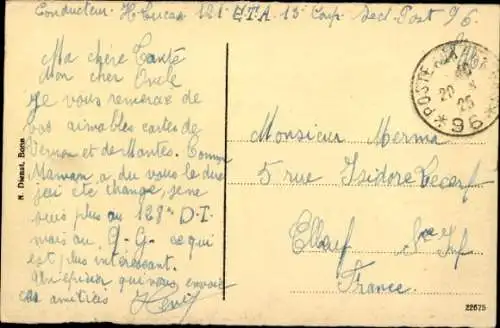 Conducteur H. Lucas 121e E.T.A. 13e Comp. Sect. Post 96.
Ma chère Tante
Mon cher Oncle
Je vous remercie de
vos aimables cartes de
Vernon et de Mantes. Comme
Maman a du vous le dire
j'ai été changé, je ne
suis plus au 128e D.I.
mais au Q.G. ce qui
est plus intéressant.
qui nous envoie
ces amitiés Henri
H. Dienst, Bonn
POSTE
20
25
* 96 *
Monsieur Merma
5 rue Isidore Lecerf
Elbeuf Sne Inf
France
22675